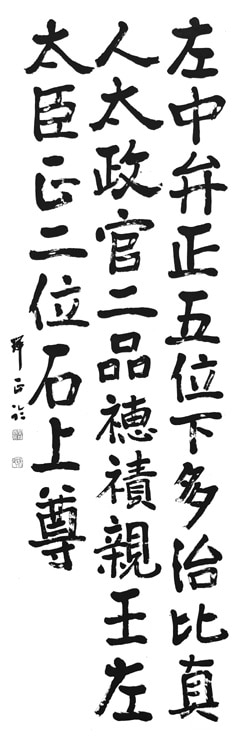 左中弁正五位下多治比真
人太政官二品穂積親王左
太臣正二位石上尊